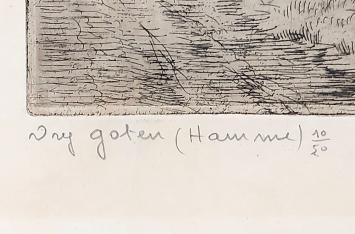 Dry goten (Hamme) 10/50